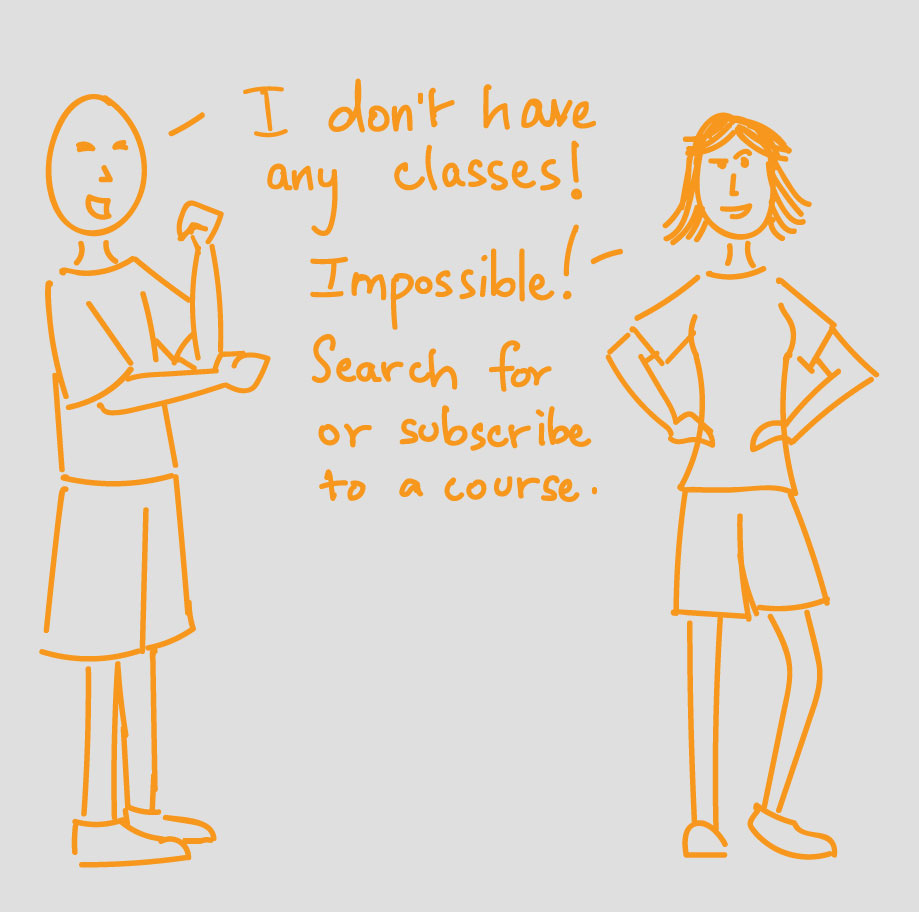 I don't have
any classes!
Impossible!
Search for
or subscribe
to a course.